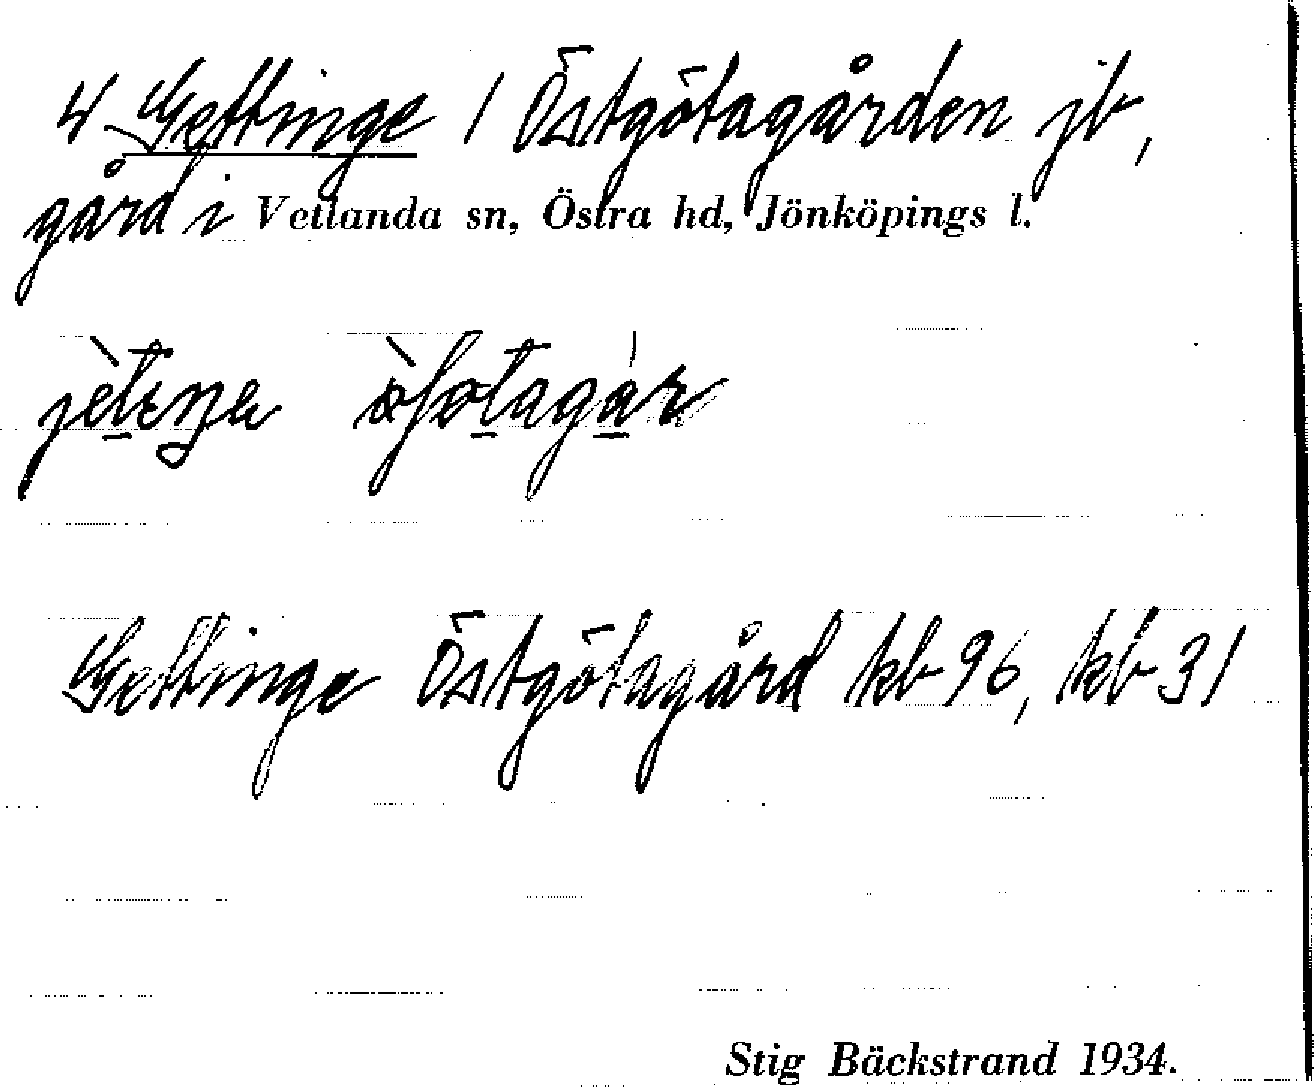 4 Gettinge / Östgötagården jb,
gård i Vetlanda sn, Östra hd, Jönköpings l.
Gettinge Östgötagård kb 96, kb 31
Stig Bäckstrand 1934.